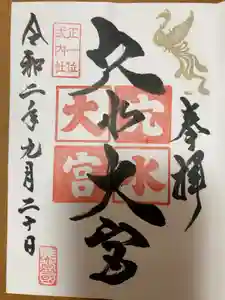 奉拝
正一位
式内社
穴水大宮
穴水
大宮
令和二年九月二十日